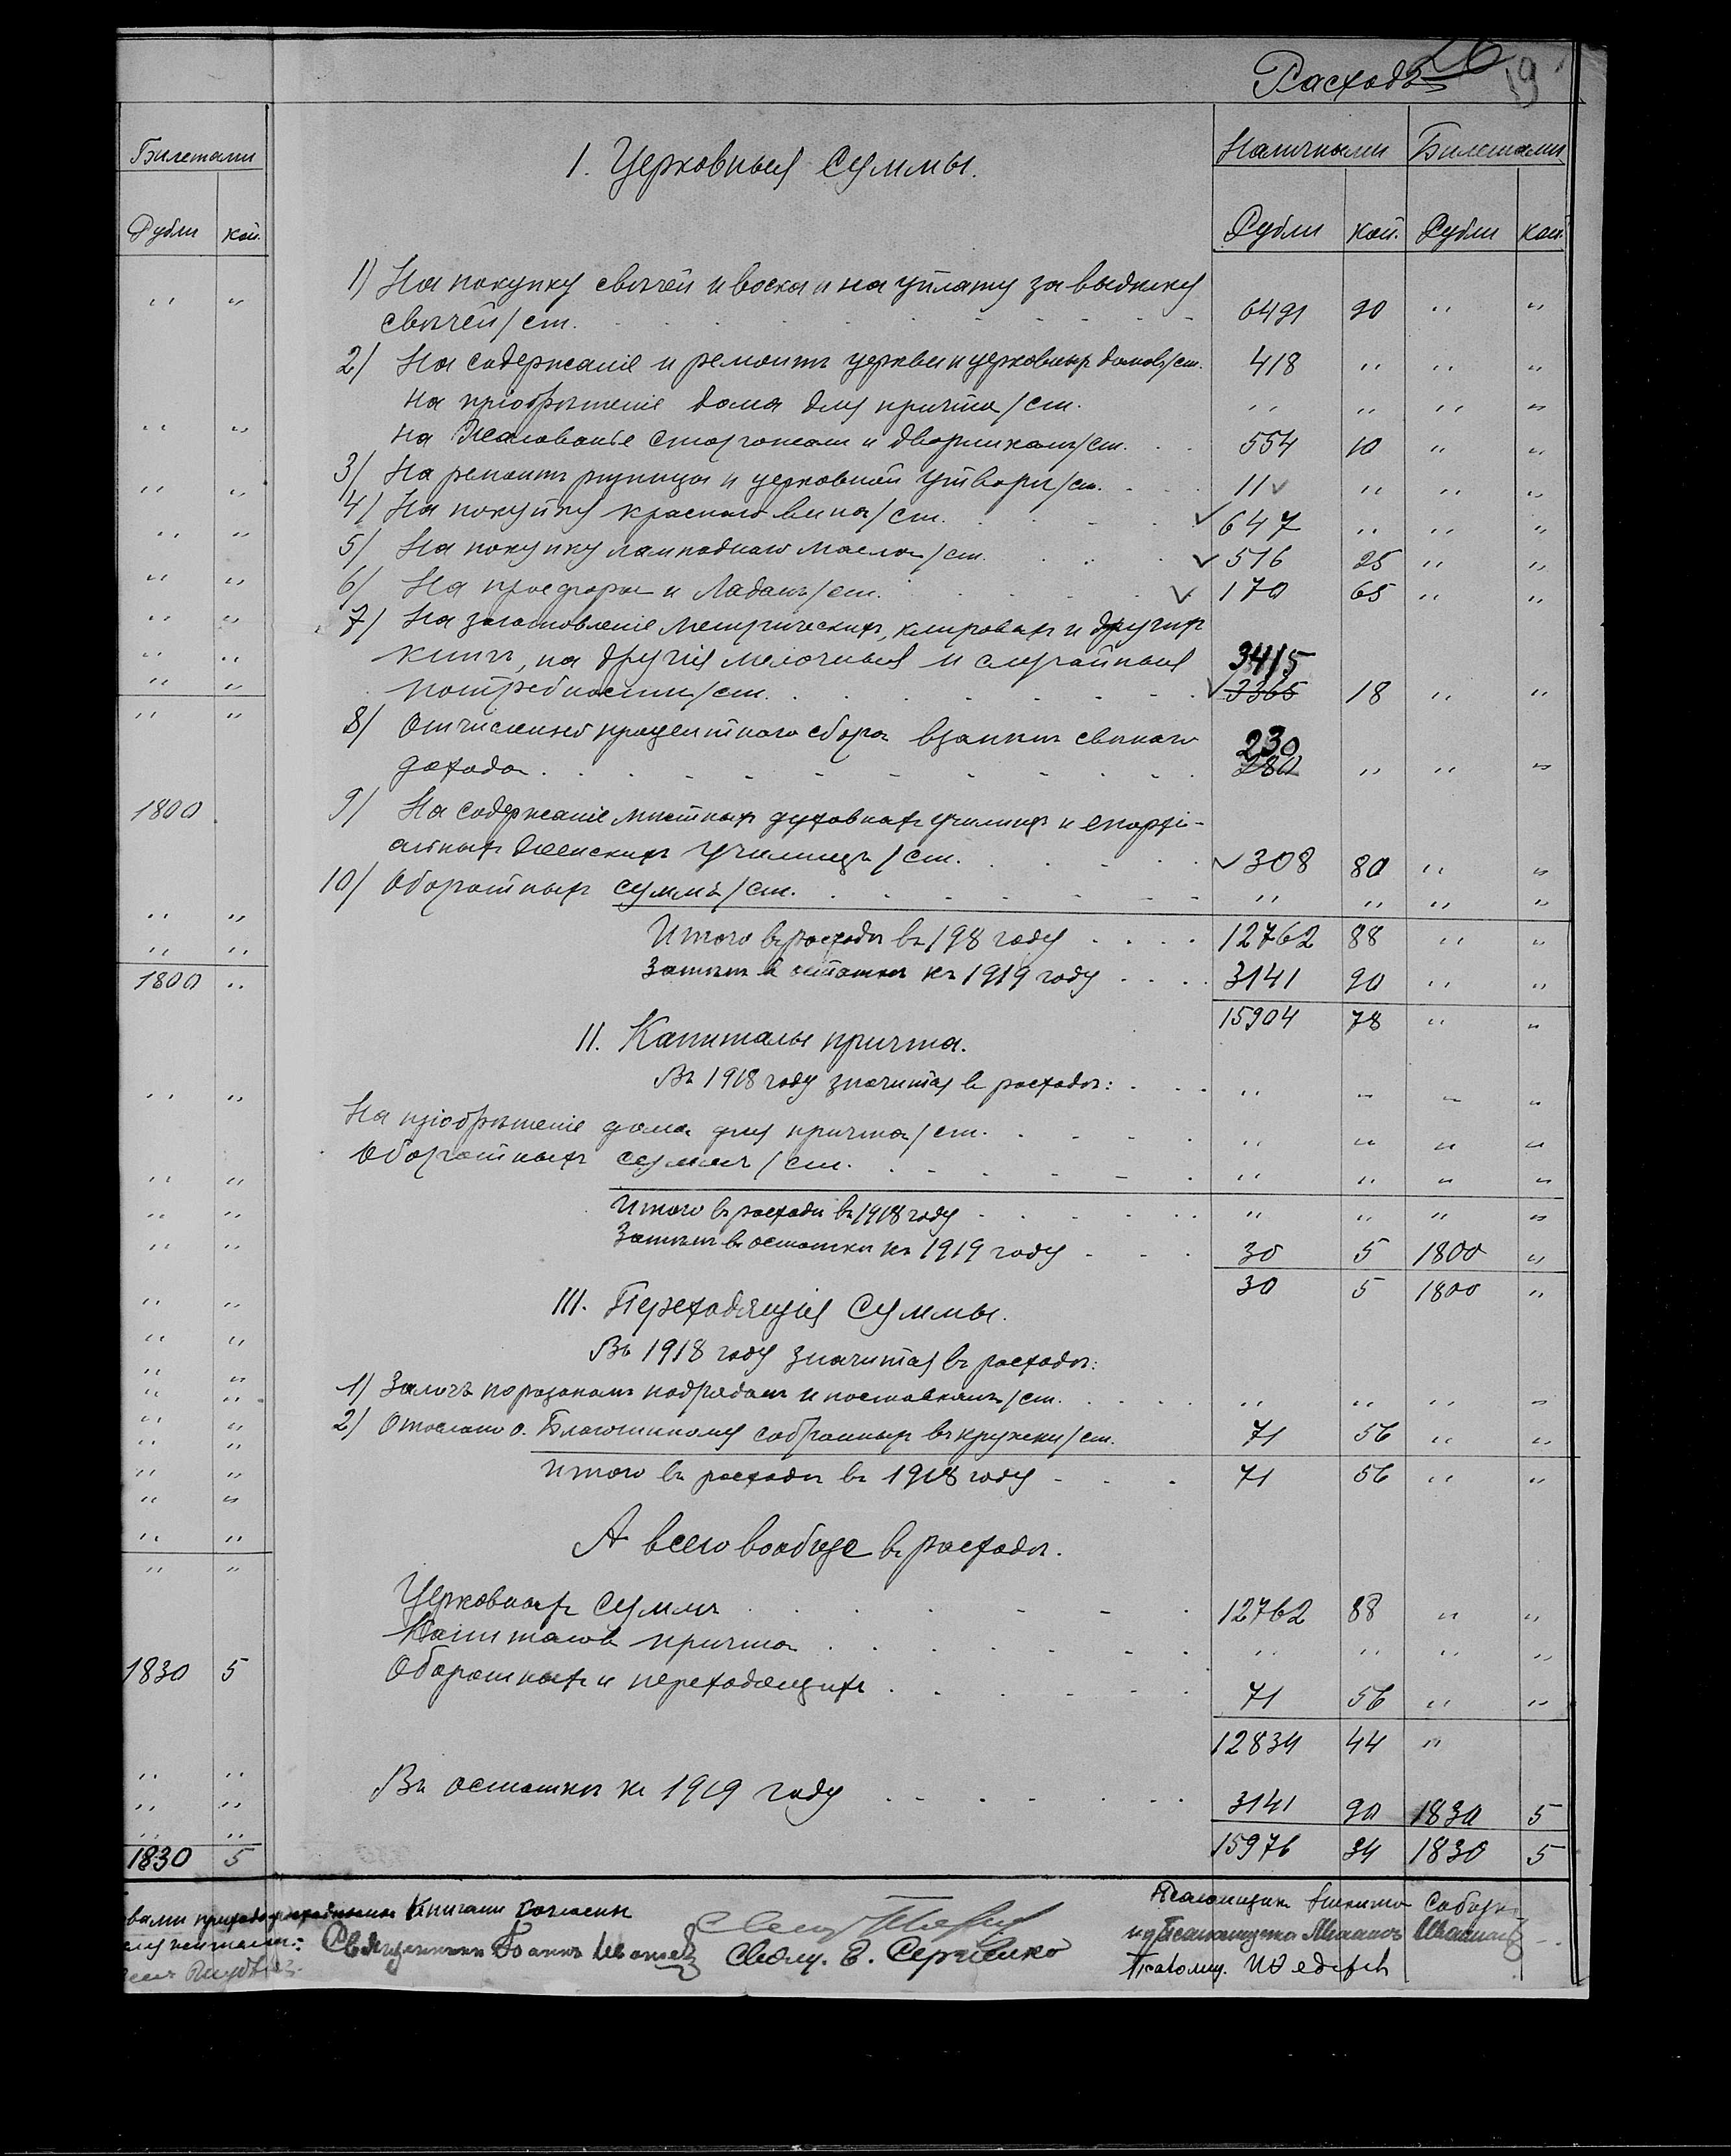 26
19
Расходъ
Билетами
Рубли коп.
1. Церковныя суммы.
Наличными Билетами
Рубли коп. Рубли коп.
1) На покупку свѣчей и воска и на уплату за выдѣлку
свѣчей/ст. 6491 90 " "
2/ На содержаніе и ремонтъ церкви и церковныхъ домовъ/ст. 418 " " "
на пріобрѣтеніе дома для причта/ст. " " " "
на жалованье сторожамъ и дворникамъ/ст. 554 10 " "
3/ На ремонтъ ризницы и церковной утвари/ст. 11 " " "
4/ На покупку краснаго вина/ст. 647 " " "
5/ На покупку лампаднаго масла/ст. 516 25 " "
6/ На просфоры и ладанъ/ст. 170 65 " "
7/ На заготовленіе метрическихъ, клировыхъ и другихъ
книгъ, на другія мелочныя и случайныя 3415
потребности/ст. 3365 18 " "
8/ Отчисленно процентнаго сбора взаменъ свѣчнаго 230
дохода 280 " " "
1800
9/ На содержаніе мѣстныхъ духовныхъ училищъ и епархі-
альныхъ женскихъ училищъ/ст. 308 80 " "
10/ Оборотныхъ суммъ/ст. " " " "
Итого въ расходѣ въ 198 году 12762 88 " "
Затѣмъ въ остаткѣ къ 1919 году 3141 90 " "
1800 "
15904 78 " "
II. Капиталы причта.
Въ 1918 году значится въ расходѣ: " " " "
На пріобрѣтеніе дома для причта/ст. " " " "
Оборотныхъ суммъ/ст. " " " "
Итого въ расходѣ въ 1918 году " " " "
Затѣмъ въ остаткѣ къ 1919 году 30 5 1800 "
30 5 1800 "
III. Переходящія суммы.
Въ 1918 году значится въ расходѣ:
1/ Залогъ по разнымъ подрядамъ и поставкамъ/ст. " " " "
2/ Отослано о. Благочинному собранныхъ въ кружки/ст. 71 56 " "
Итого въ расходѣ въ 1918 году 71 56 " "
А всего вообще въ расходѣ.
Церковныхъ суммъ 12762 88 " "
Капиталовъ причта " " " "
1830 5
Оборотныхъ и переходящихъ 71 56 " "
12834 44 "
Въ остаткѣ къ 1919 году 3141 90 1830 5
1830 5
15976 34 1830 5
книгами согласны
Священникъ Іоаннъ
Свящ. В. Сергѣенко
Псаломщикъ Никита